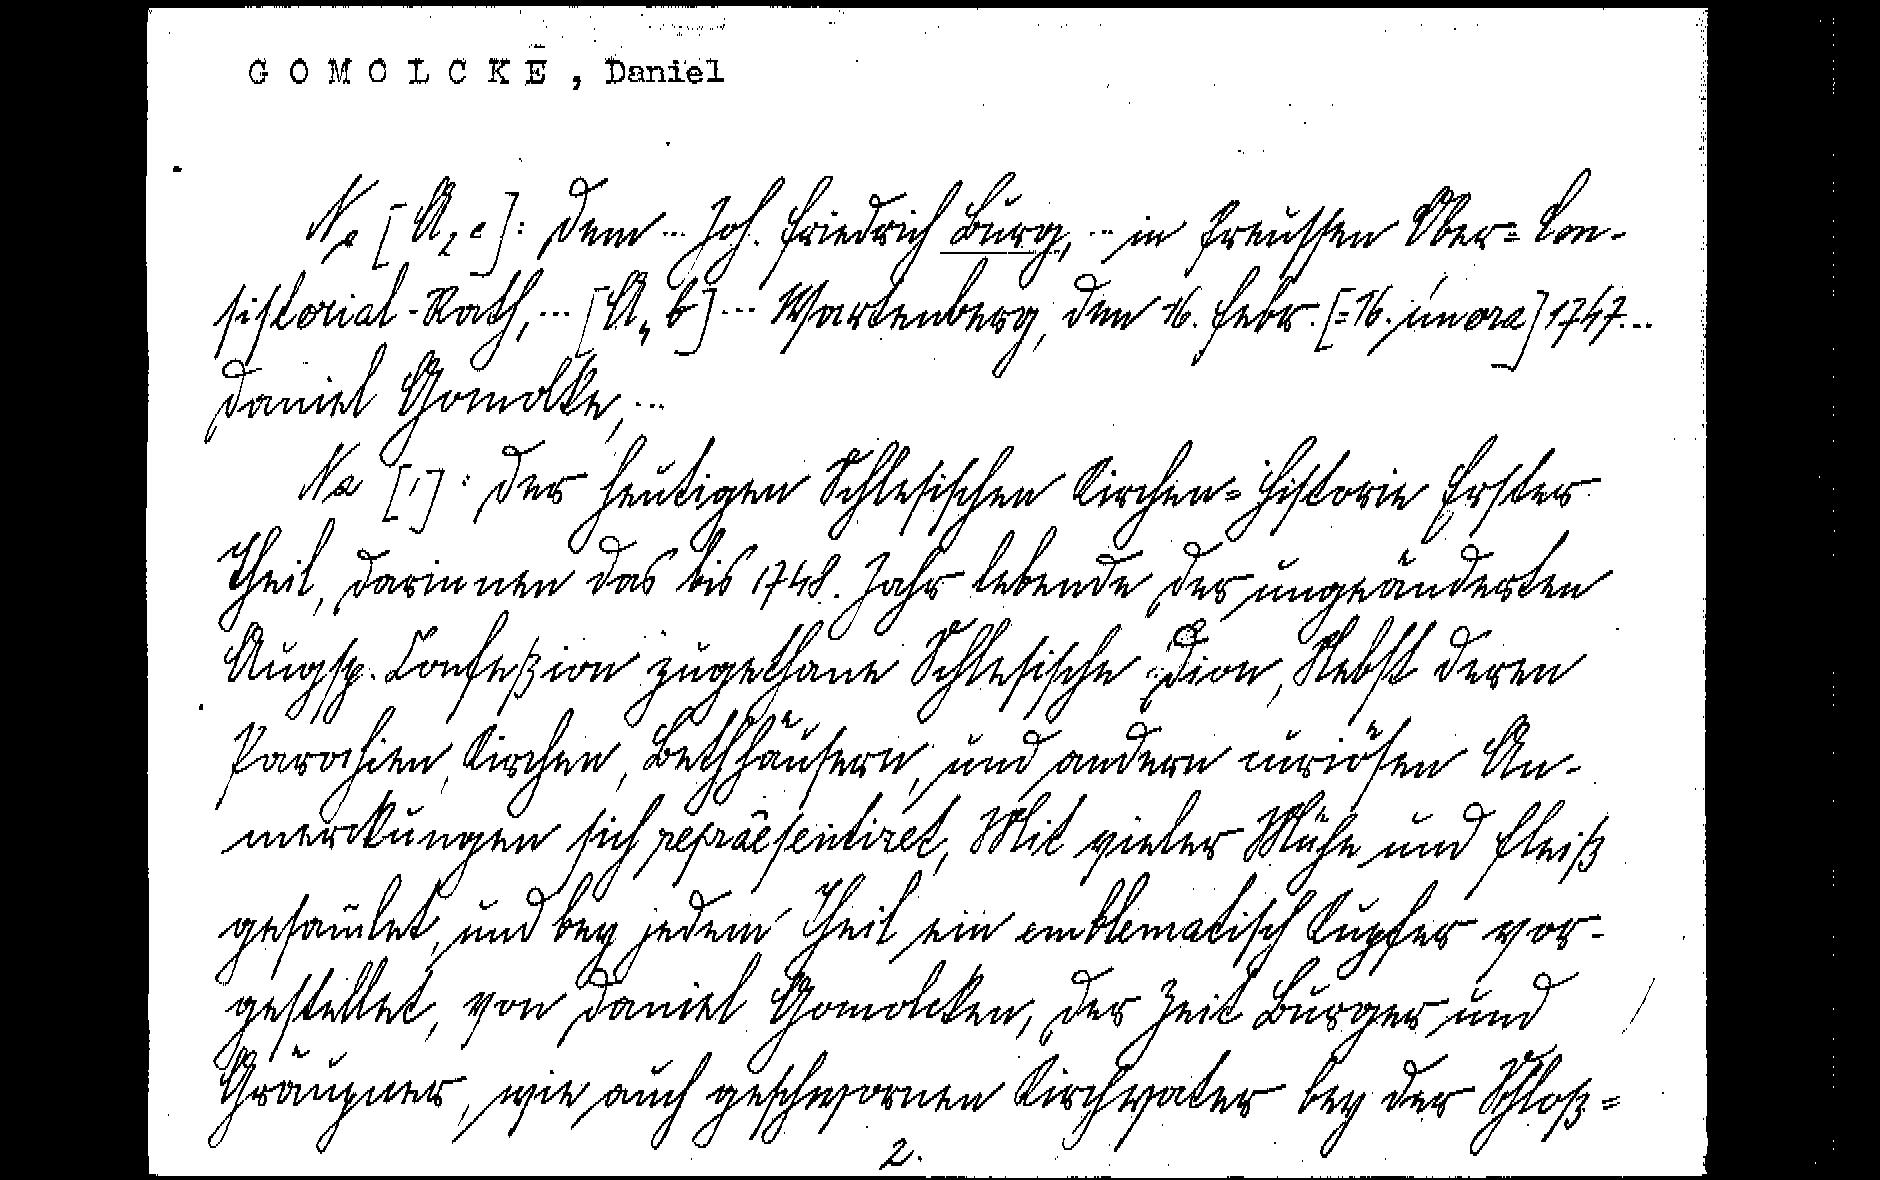 GOMOLCKE, Daniel
Na [A₂a]: Dem ... Joh. Friedrich Burg, ... in Preussen Ober= Con-
sistorial-Rath, ... [A₄b] ... Wartenberg, den 16. Febr. [=16. února] 1747...
Daniel Gomolke, ...
Na [1]: Der heutigen Schlesischen Kirchen=Historie Erster
Theil, darinnen das bis 1748. Jahr lebende der ungeänderten
Augsp. Confeßion zugethane Schlesische Zion, Nebst deren
Parochien, Kirchen, Bethhäusern, und andern curiösen An-
merckungen sich repræsentiret, Mit vieler Mühe und Fleiß
gesam̄let, und bey jedem Theil ein emblematisch Kupfer vor-
gestellet, von Daniel Gomolcken, der Zeit Burger und
Gräupner, wie auch geschwornen Kirchvater bey der Schloß=
2.